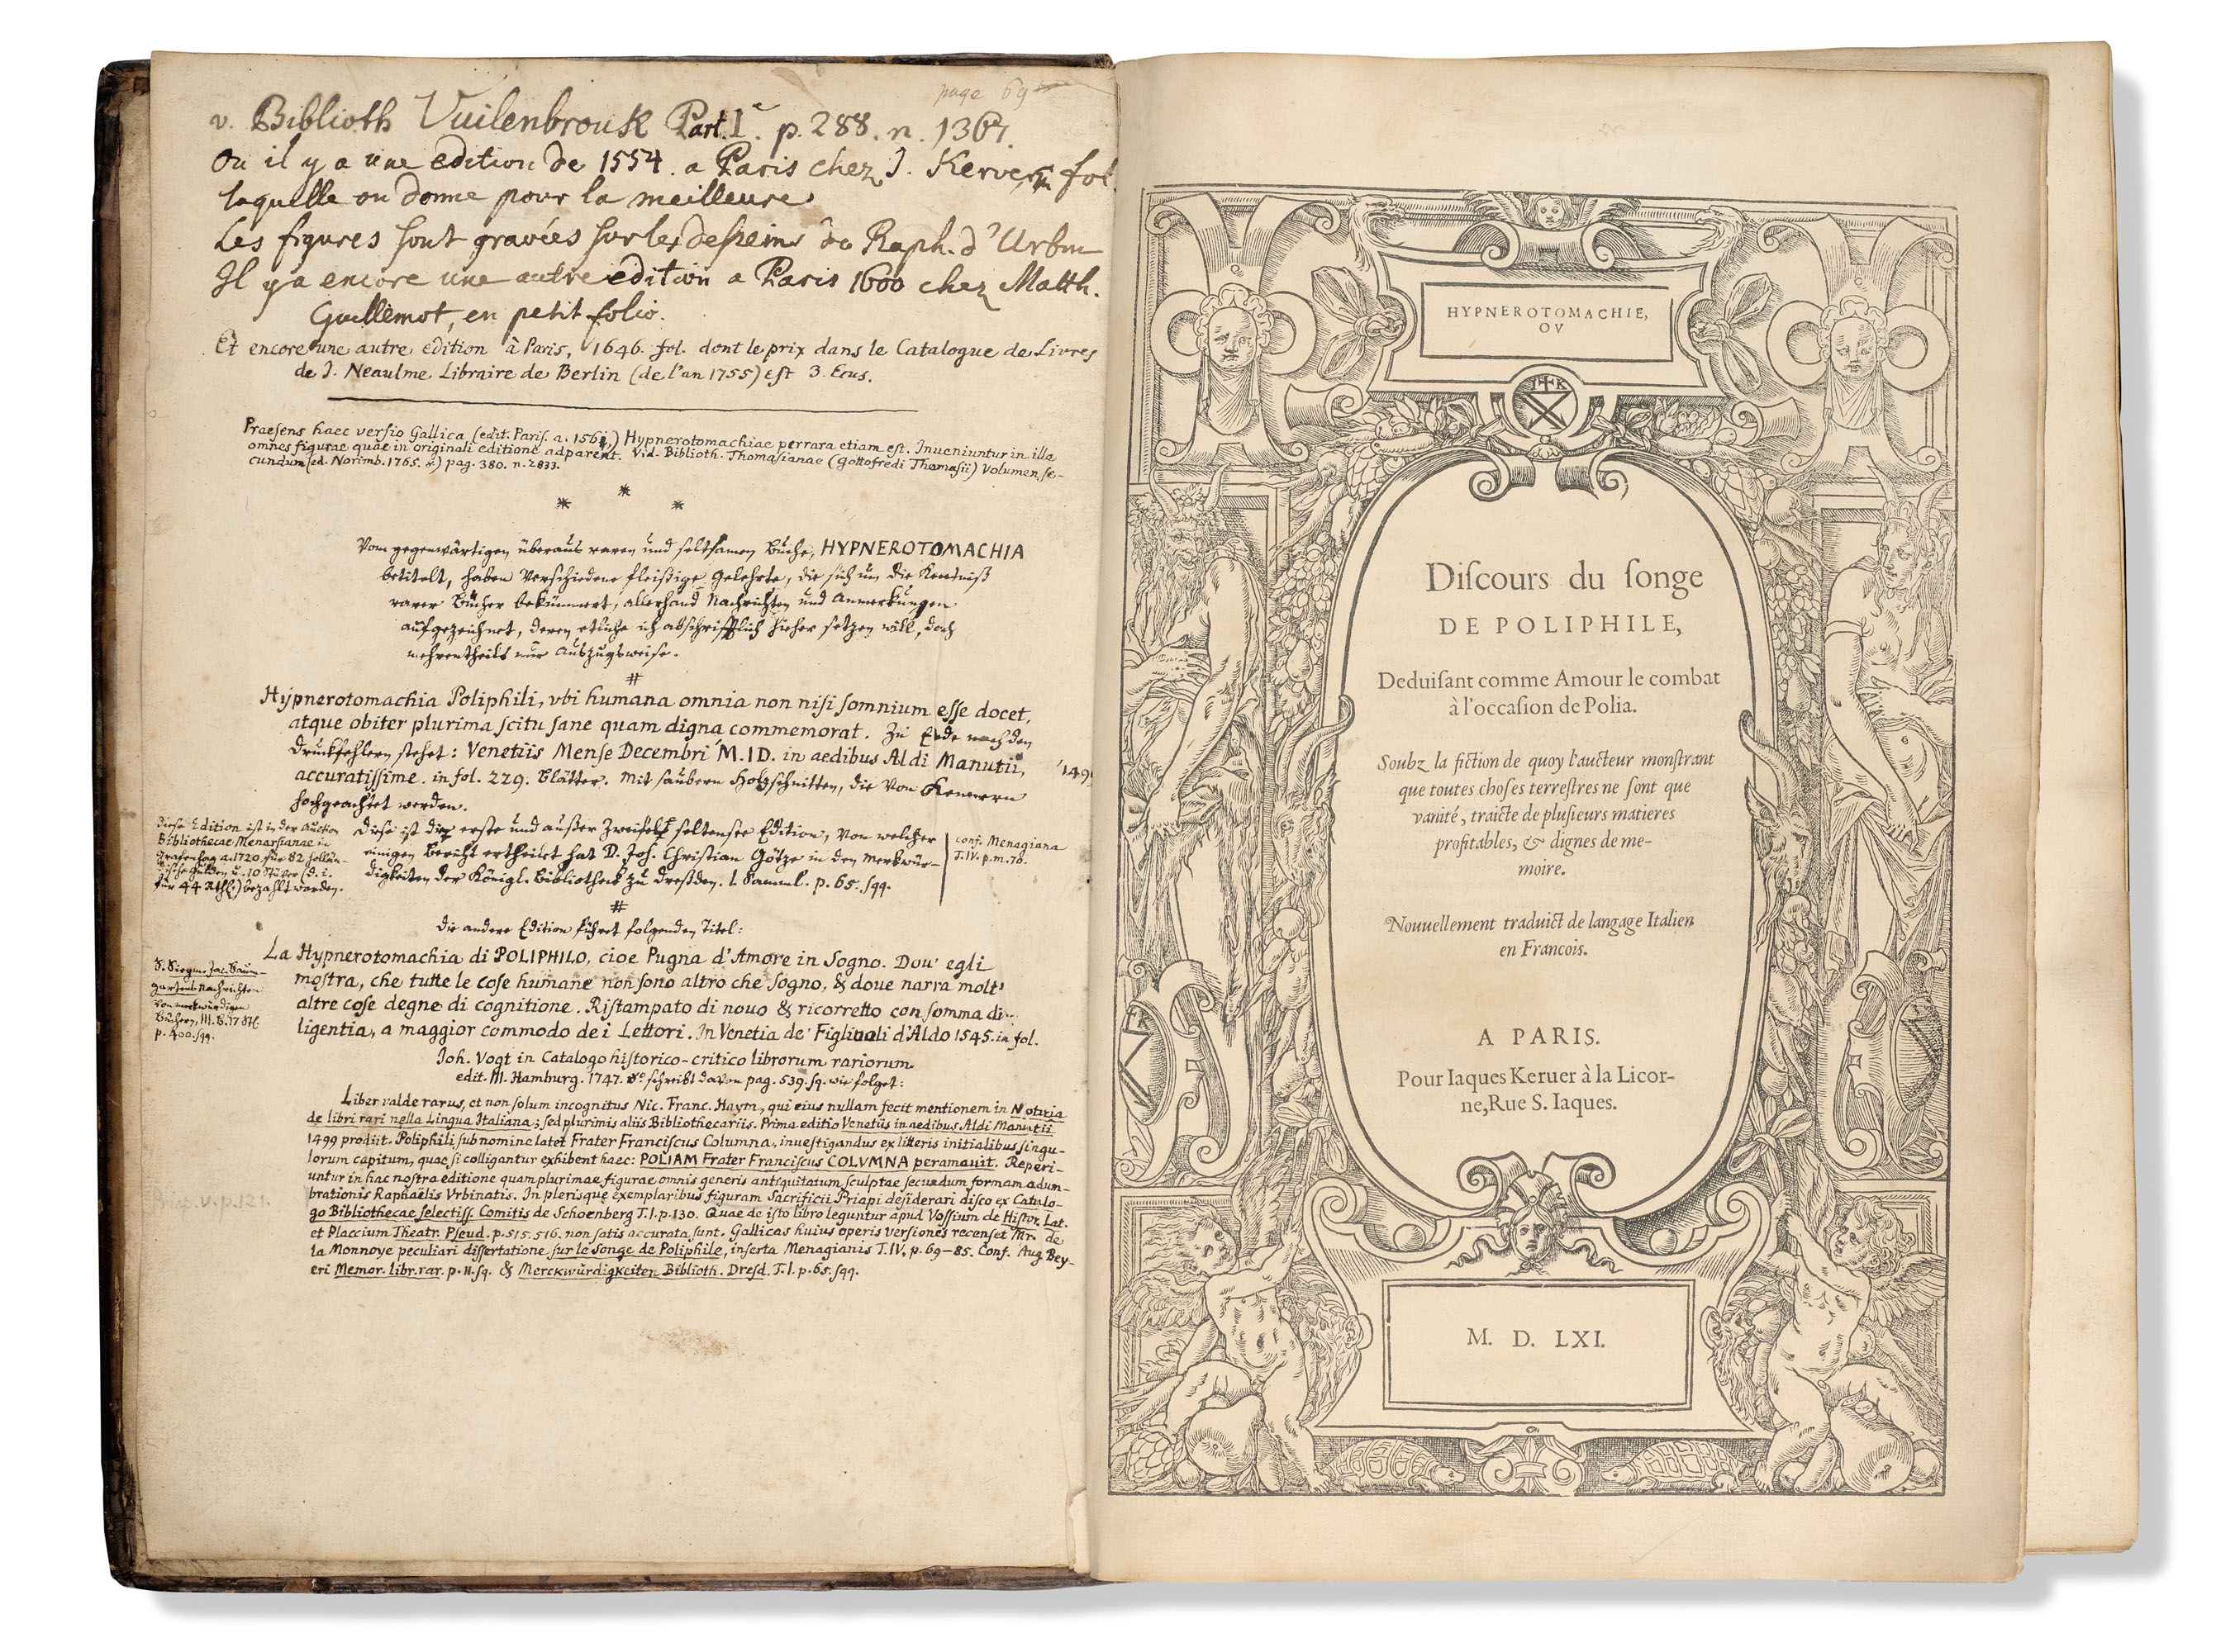 page 69
v. Biblioth Vuilenbrouk Part. I. p. 288. n. 1367.
Ou il y a une edition de 1554. a Paris chez J. Kerver, in fol.
laquelle on donne pour la meilleure
Les figures sont gravées sur les desseins de Raph. d'Urbin
Il y a encore une autre edition a Paris 1600 chez Matth.
Guillemot, en petit folio.
Et encore une autre edition à Paris, 1646. fol. dont le prix dans le Catalogue de Livres
de J. Neaulme Libraire de Berlin (de l'an 1755) est 3. Ecus.
Praeſens haec verſio Gallica (edit. Pariſ. a. 1561,) Hypnerotomachiae perrara etiam eſt. Inueniuntur in illa
omnes figurae quae in originali editione adparent. Vid. Biblioth. Thomaſianae (Gottofredi Thomaſii) Volumen ſe-
cundum (ed. Norimb. 1765. 8.) pag. 380. n. 2833.
* * *
Vom gegenwärtigen überaus raren und seltsamen Buche, HYPNEROTOMACHIA
betitelt, haben verschiedene fleißige Gelehrte, die sich um die Kentniß
rarer Bücher bekümmert, allerhand Nachrichten und Anmerkungen
aufgezeichnet, deren etliche ich abschrifftlich hieher setzen will, doch
mehrentheils nur Auszugsweise.
#
Hypnerotomachia Poliphili, vbi humana omnia non niſi ſomnium eſſe docet,
atque obiter plurima ſcitu ſane quam digna commemorat. Zu Ende nach den
Druckfehlern stehet: Venetiis Mense Decembri M.ID. in aedibus Aldi Manutii,
accuratiſſime. in fol. 229. Blätter. Mit saubern Holzschnitten, die von Kennern
hochgeachtet werden.
149
Diese Edition ist in der Auction
Bibliothecae Menarsianae in
Gravenhag a. 1720. für 82 hollän-
dische Gulden u. 10 Stüver (d. i.
für 44 Rthl.) bezahlt worden.
Diese ist die erste und außer Zweifel seltenste Edition, von welcher
einigen Bericht ertheilet hat D. Joh. Christian Götze in den Merkwür-
digkeiten der Königl. Bibliotheck zu Dreßden. I. Samml. p. 65. ſqq.
conf. Menagiana
T. IV. p. m. 70.
#
Die andere Edition führet folgenden Titel:
La Hypnerotomachia di POLIPHILO, cioe Pugna d'Amore in Sogno. Dou' egli
moſtra, che tutte le coſe humane non ſono altro che Sogno, & doue narra molt'
altre coſe degne di cognitione. Riſtampato di nouo & ricorretto con ſomma di-
ligentia, a maggior commodo de i Lettori. In Venetia de' Figliuoli d'Aldo 1545. in fol.
S. Siegm. Jac. Baum-
gartens Nachrichten
von merkwürdigen
Büchern, III. B.
p. 400. ſqq.
Joh. Vogt in Catalogo hiſtorico-critico librorum rariorum
edit. III. Hamburg. 1747. 8º schreibt davon pag. 539. ſq. wie folget:
Liber valde rarus, et non ſolum incognitus Nic. Franc. Haym, qui eius nullam fecit mentionem in Notizia
de libri rari nella Lingua Italiana; ſed plurimis aliis Bibliothecariis. Prima editio Venetiis in aedibus Aldi Manutii
1499 prodiit. Poliphili ſub nomine latet Frater Franciſcus Columna, inueſtigandus ex litteris initialibus ſingu-
lorum capitum, quae ſi colligantur exhibent haec: POLIAM Frater Franciſcus COLVMNA peramauit. Reperi-
untur in hac noſtra editione quamplurimae figurae omnis generis antiquitatum ſculptae ſecundum formam adum-
brationis Raphaëlis Vrbinatis. In plerisque exemplaribus figuram Sacrificii Priapi deſiderari diſco ex Catalo-
go Bibliothecae ſelectiſſ. Comitis de Schoenberg T. I. p. 130. Quae de iſto libro leguntur apud Voſſium de Hiſtor. Lat.
et Placcium Theatr. Pſeud. p. 515. 516. non ſatis accurata ſunt. Gallicas huius operis verſiones recenſet Mr. de
la Monnoye peculiari diſſertatione ſur le Songe de Poliphile, inſerta Menagianis T. IV. p. 69-85. Conf. Aug. Bey-
eri Memor. libr. rar. p. 11. ſq. & Merckwürdigkeiten Biblioth. Dresd. T. I. p. 65. ſqq.
Priap. v. p. 121.
HYPNEROTOMACHIE,
OV
Diſcours du ſonge
DE POLIPHILE,
Deduiſant comme Amour le combat
à l'occaſion de Polia.
Soubz la fiction de quoy l'aucteur monſtrant
que toutes choſes terreſtres ne ſont que
vanité, traicte de pluſieurs matieres
profitables, & dignes de me-
moire.
Nouuellement traduict de langage Italien
en Francois.
A PARIS.
Pour Iaques Keruer à la Licor-
ne, Rue S. Iaques.
M. D. LXI.